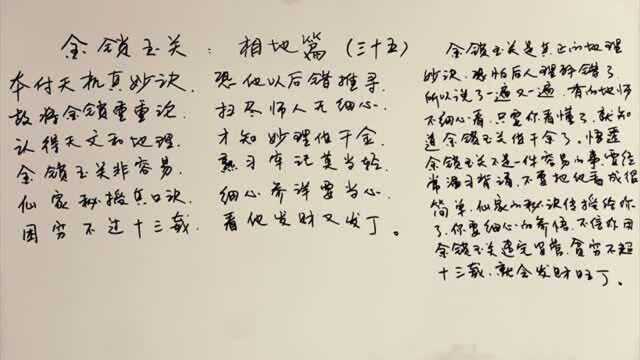 金锁玉关：相地篇（三十五）
本付天机真妙诀，恐他以后错推寻。
故将金锁重重说，扫尽师人无细心。
认得天文和地理，才知妙理值千金。
金锁玉关非容易，熟习牢记莫当轻
仙家秘授真口诀，细心参详要当心。
困穷不过十三载，看他发财又发丁。
金锁玉关是真正的地理
妙诀，恐怕后人理解错了，
所以说了一遍又一遍，有的地师
不细心看，只要你看懂了，就知
道金锁玉关值千金了。悟透
金锁玉关不是一件容易的事，要经
常温习背诵，不要把他看成很
简单，仙家的秘诀传授给你
了，你要细心的参悟，不信你用
金锁玉关造完阴宅，贫穷不超
十三载，就会发财旺丁。